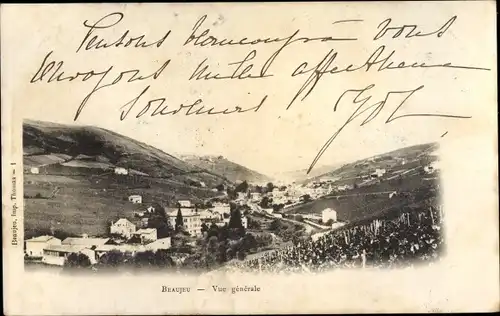 Pensons beaucoup à vous
Envoyons mille affectueux
Souvenirs
Beaujeu, Imp. Thomas — 1
BEAUJEU — Vue générale